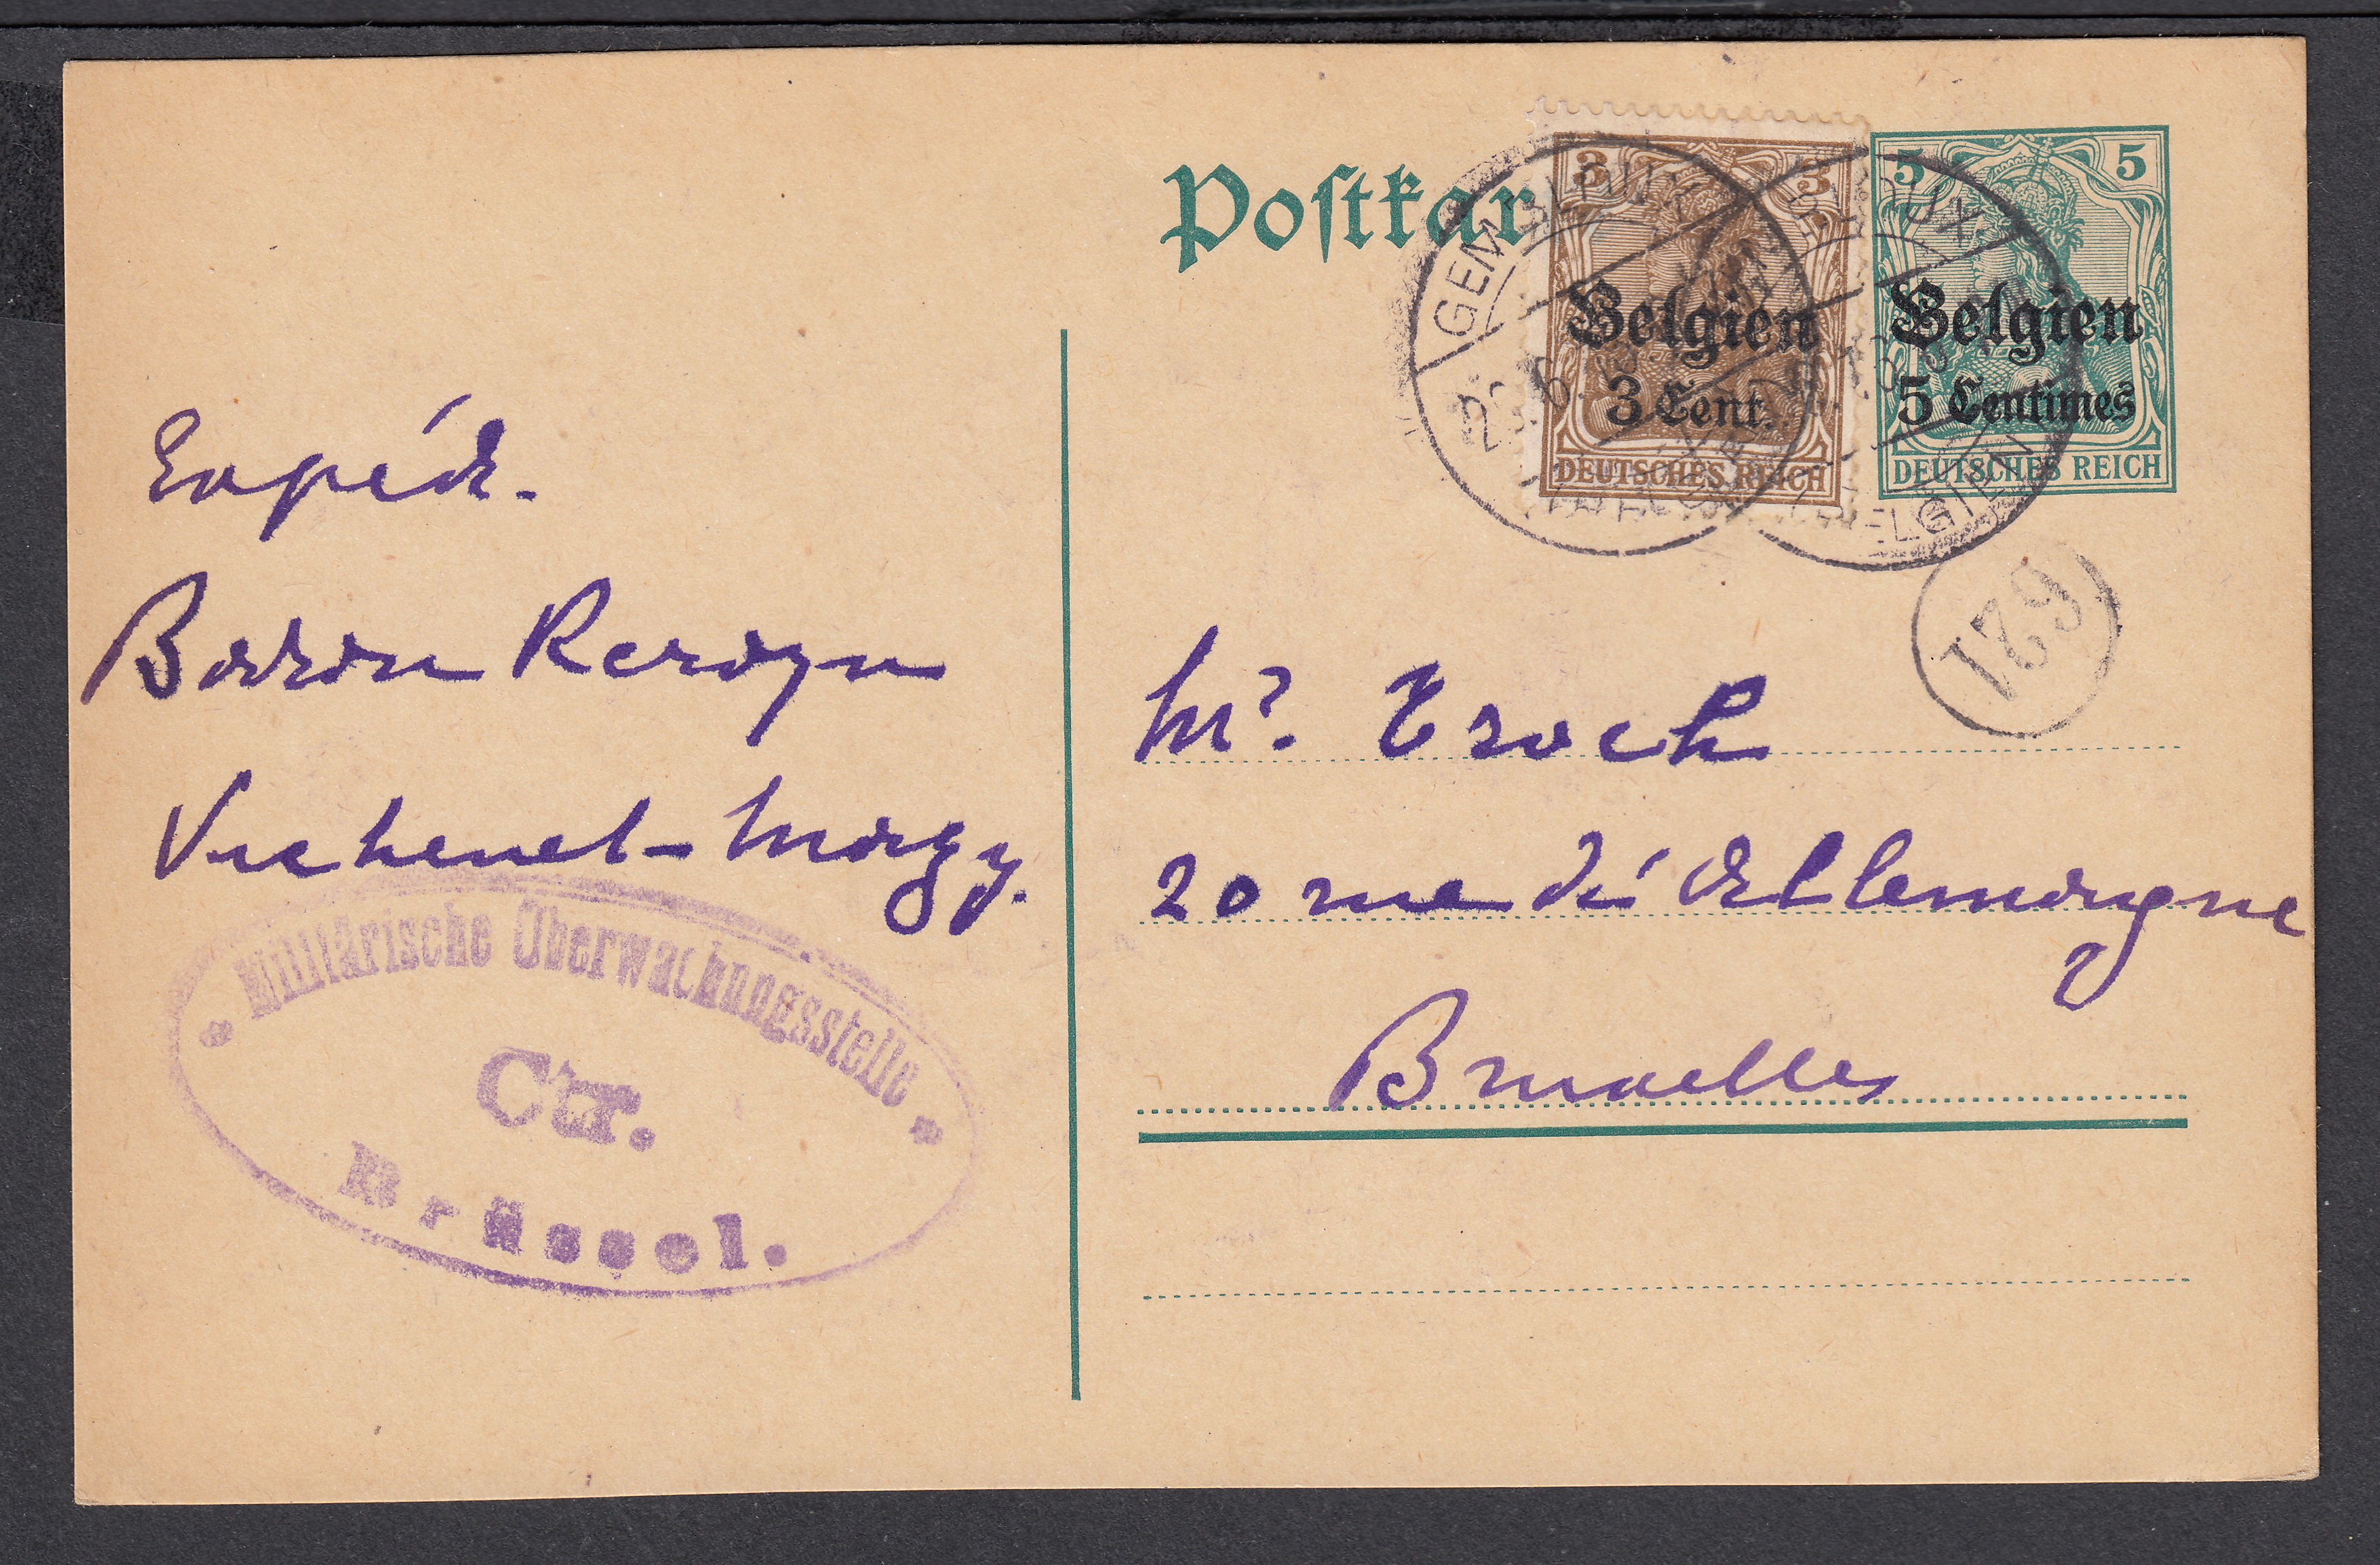 Postkar
3 3
Belgien
3 Cent.
DEUTSCHES REICH
5 5
Belgien
5 Centimes
DEUTSCHES REICH
GEMBLOUX
BELGIEN
621
Expéd.
Baron
Vichenet-Mazy.
Militärische Überwachungsstelle
Ctr.
Brüssel.
Mr.
20 rue d'Allemagne
Bruxelles